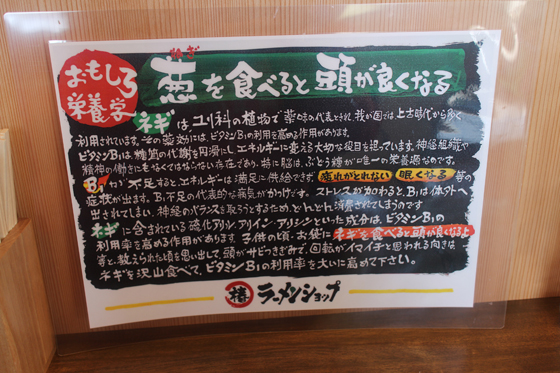 おもしろ
栄養学
ねぎ
葱を食べると頭が良くなる
ネギはユリ科の植物で薬味の代表とされ、我が国では上古時代から多く
利用されています。その薬効には、ビタミンB₁の利用を高める作用があります。
ビタミンB₁は、糖質の代謝を円滑にし、エネルギーに変える大切な役目を担っています。神経組織や
精神の働きにもなくてはならない存在であり、特に脳は、ぶどう糖が唯一の栄養源なのです。
B₁が不足すると、エネルギーは満足に供給できず、疲れがとれない 眠くなる 等の
症状が出ます。B₁不足の代表的な病気がかっけです。ストレスが加わると、B₁は体外へ
出されてしまい、神経のバランスを取ろうとするため、どんどん消費されてしまうのです
ネギに含まれている硫化アリル、アリイン・アリシンといった成分は、ビタミンB₁の
利用率を高める作用があります。子供の頃・お袋にネギを食べると頭が良くなるよ
等と教えられた頃を思い出して、頭がサビつきぎみで、回転がイマイチと思われる向きは、
ネギを沢山食べて、ビタミンB₁の利用率を大いに高めて下さい。
椿 ラーメンショップ